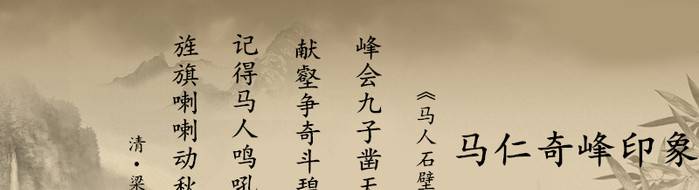 马仁奇峰印象
《马人石壁
峰会九子凿玉
献壑争奇斗碧
记得马人鸣吼
旌旗喇喇动秋
清·梁